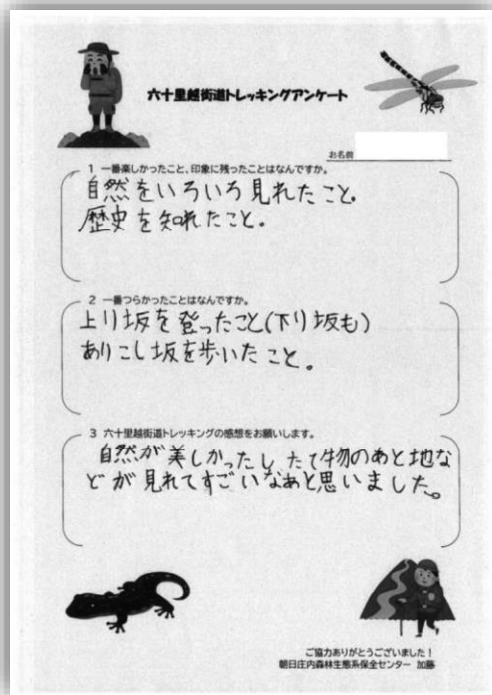 六十里越街道トレッキングアンケート
お名前
1 一番楽しかったこと、印象に残ったことはなんですか。
自然をいろいろ見れたこと。
歴史を知れたこと。
2 一番つらかったことはなんですか。
上り坂を登ったこと(下り坂も)
ありこし坂を歩いたこと。
3 六十里越街道トレッキングの感想をお願いします。
自然が美しかったし、たて物のあと地な
どが見れてすごいなあと思いました。
ご協力ありがとうございました!
朝日庄内森林生態系保全センター 加藤